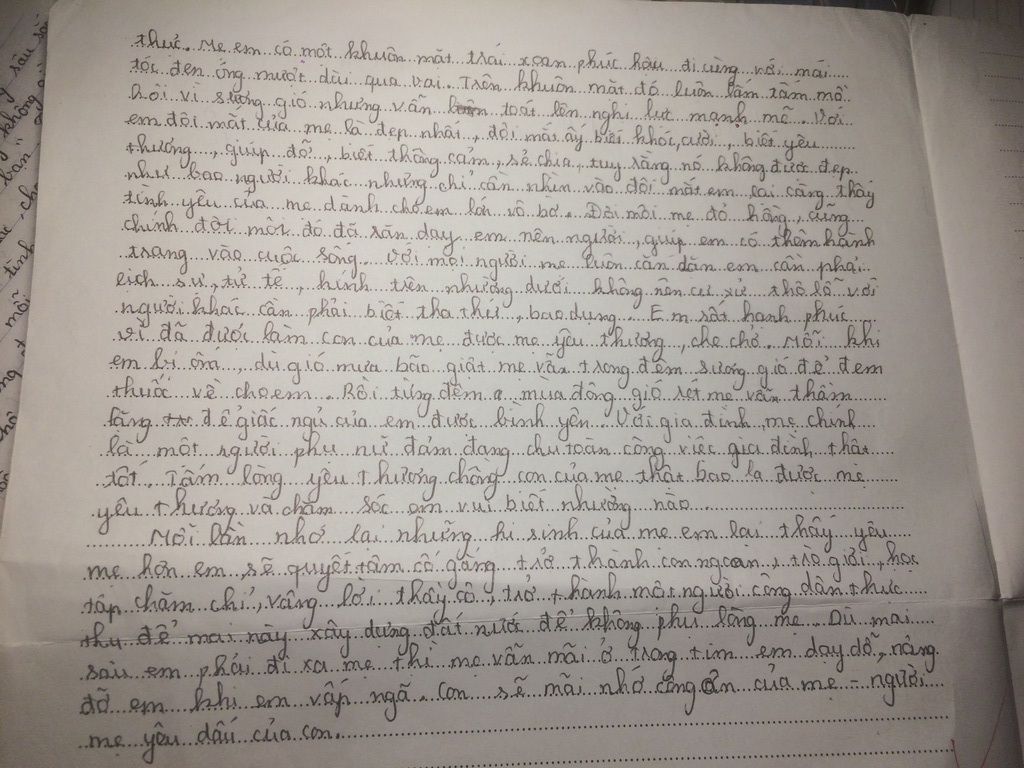 thức. Mẹ em có một khuôn mặt trái xoan phúc hậu đi cùng với mái
tóc đen óng mượt dài qua vai. Trên khuôn mặt đó luôn lấm tấm mồ
hôi vì sương gió nhưng vẫn toát lên nghị lực mạnh mẽ. Với
em đôi mắt của mẹ là đẹp nhất, đôi mắt ấy biết khóc, cười, biết yêu
thương, giúp đỡ, biết thông cảm, sẻ chia, tuy rằng nó không được đẹp
như bao người khác nhưng chỉ cần nhìn vào đôi mắt em lại càng thấy
tình yêu của mẹ dành cho em lớn vô bờ. Đôi môi mẹ đỏ hồng, cũng
chính đôi môi đó đã răn dạy em nên người, giúp em có thêm hành
trang vào cuộc sống. Với mọi người mẹ luôn căn dặn em cần phải
lịch sự, tử tế, kính trên nhường dưới không nên cư xử thô lỗ với
người khác cần phải biết tha thứ, bao dung. Em rất hạnh phúc
vì đã được làm con của mẹ được mẹ yêu thương, che chở. Mỗi khi
em bị ốm, dù gió mưa bão giật mẹ vẫn trong đêm sương gió để đem
thuốc về cho em. Rồi từng đêm mùa đông gió rét mẹ vẫn thầm
lặng để giấc ngủ của em được bình yên. Với gia đình mẹ chính
là một người phụ nữ đảm đang chu toàn công việc gia đình thật
tốt. Tấm lòng yêu thương chồng con của mẹ thật bao la được mẹ
yêu thương và chăm sóc em vui biết nhường nào.
Mỗi lần nhớ lại những hi sinh của mẹ em lại thấy yêu
mẹ hơn em sẽ quyết tâm cố gắng trở thành con ngoan, trò giỏi, học
tập chăm chỉ, vâng lời thầy cô, trở thành một người công dân thực
thụ để mai này xây dựng đất nước để không phụ lòng mẹ. Dù mai
sau em phải đi xa mẹ thì mẹ vẫn mãi ở trong tim em dạy dỗ, nâng
đỡ em khi em vấp ngã. Con sẽ mãi nhớ công ơn của mẹ - người
mẹ yêu dấu của con.